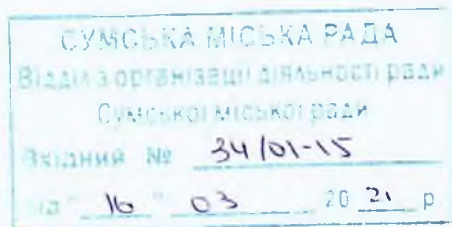 СУМСЬКА МІСЬКА РАДА
Відділ з організації діяльності ради
Сумської міської ради
Вхідний № 34/01-15
від "16" 03 2021 р